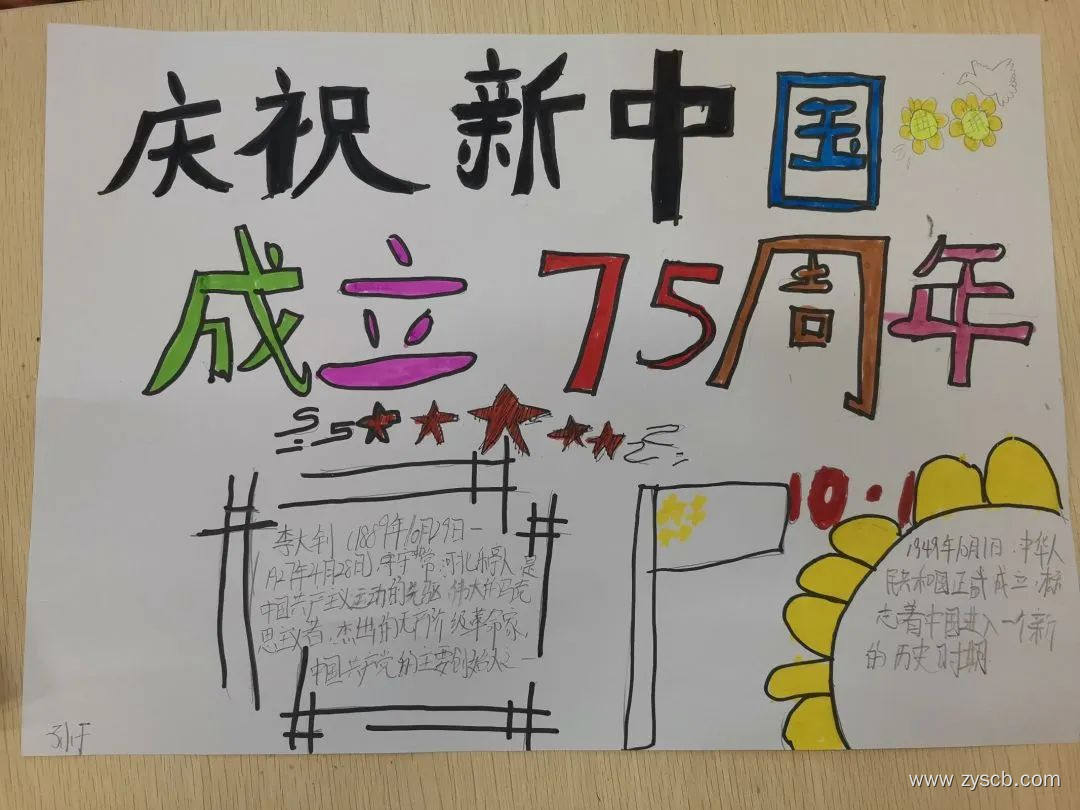 庆祝新中国
成立75周年
10·1
李大钊（1889年10月29日一
1927年4月28日，字守常，河北乐亭人，是
中国共产主义运动的先驱，伟大的马克
思主义者、杰出的无产阶级革命家，
中国共产党的主要创始人之一
1949年10月1日，中华人
民共和国正式成立，标
志着中国进入一个新
的历史时期
www.zyscb.com